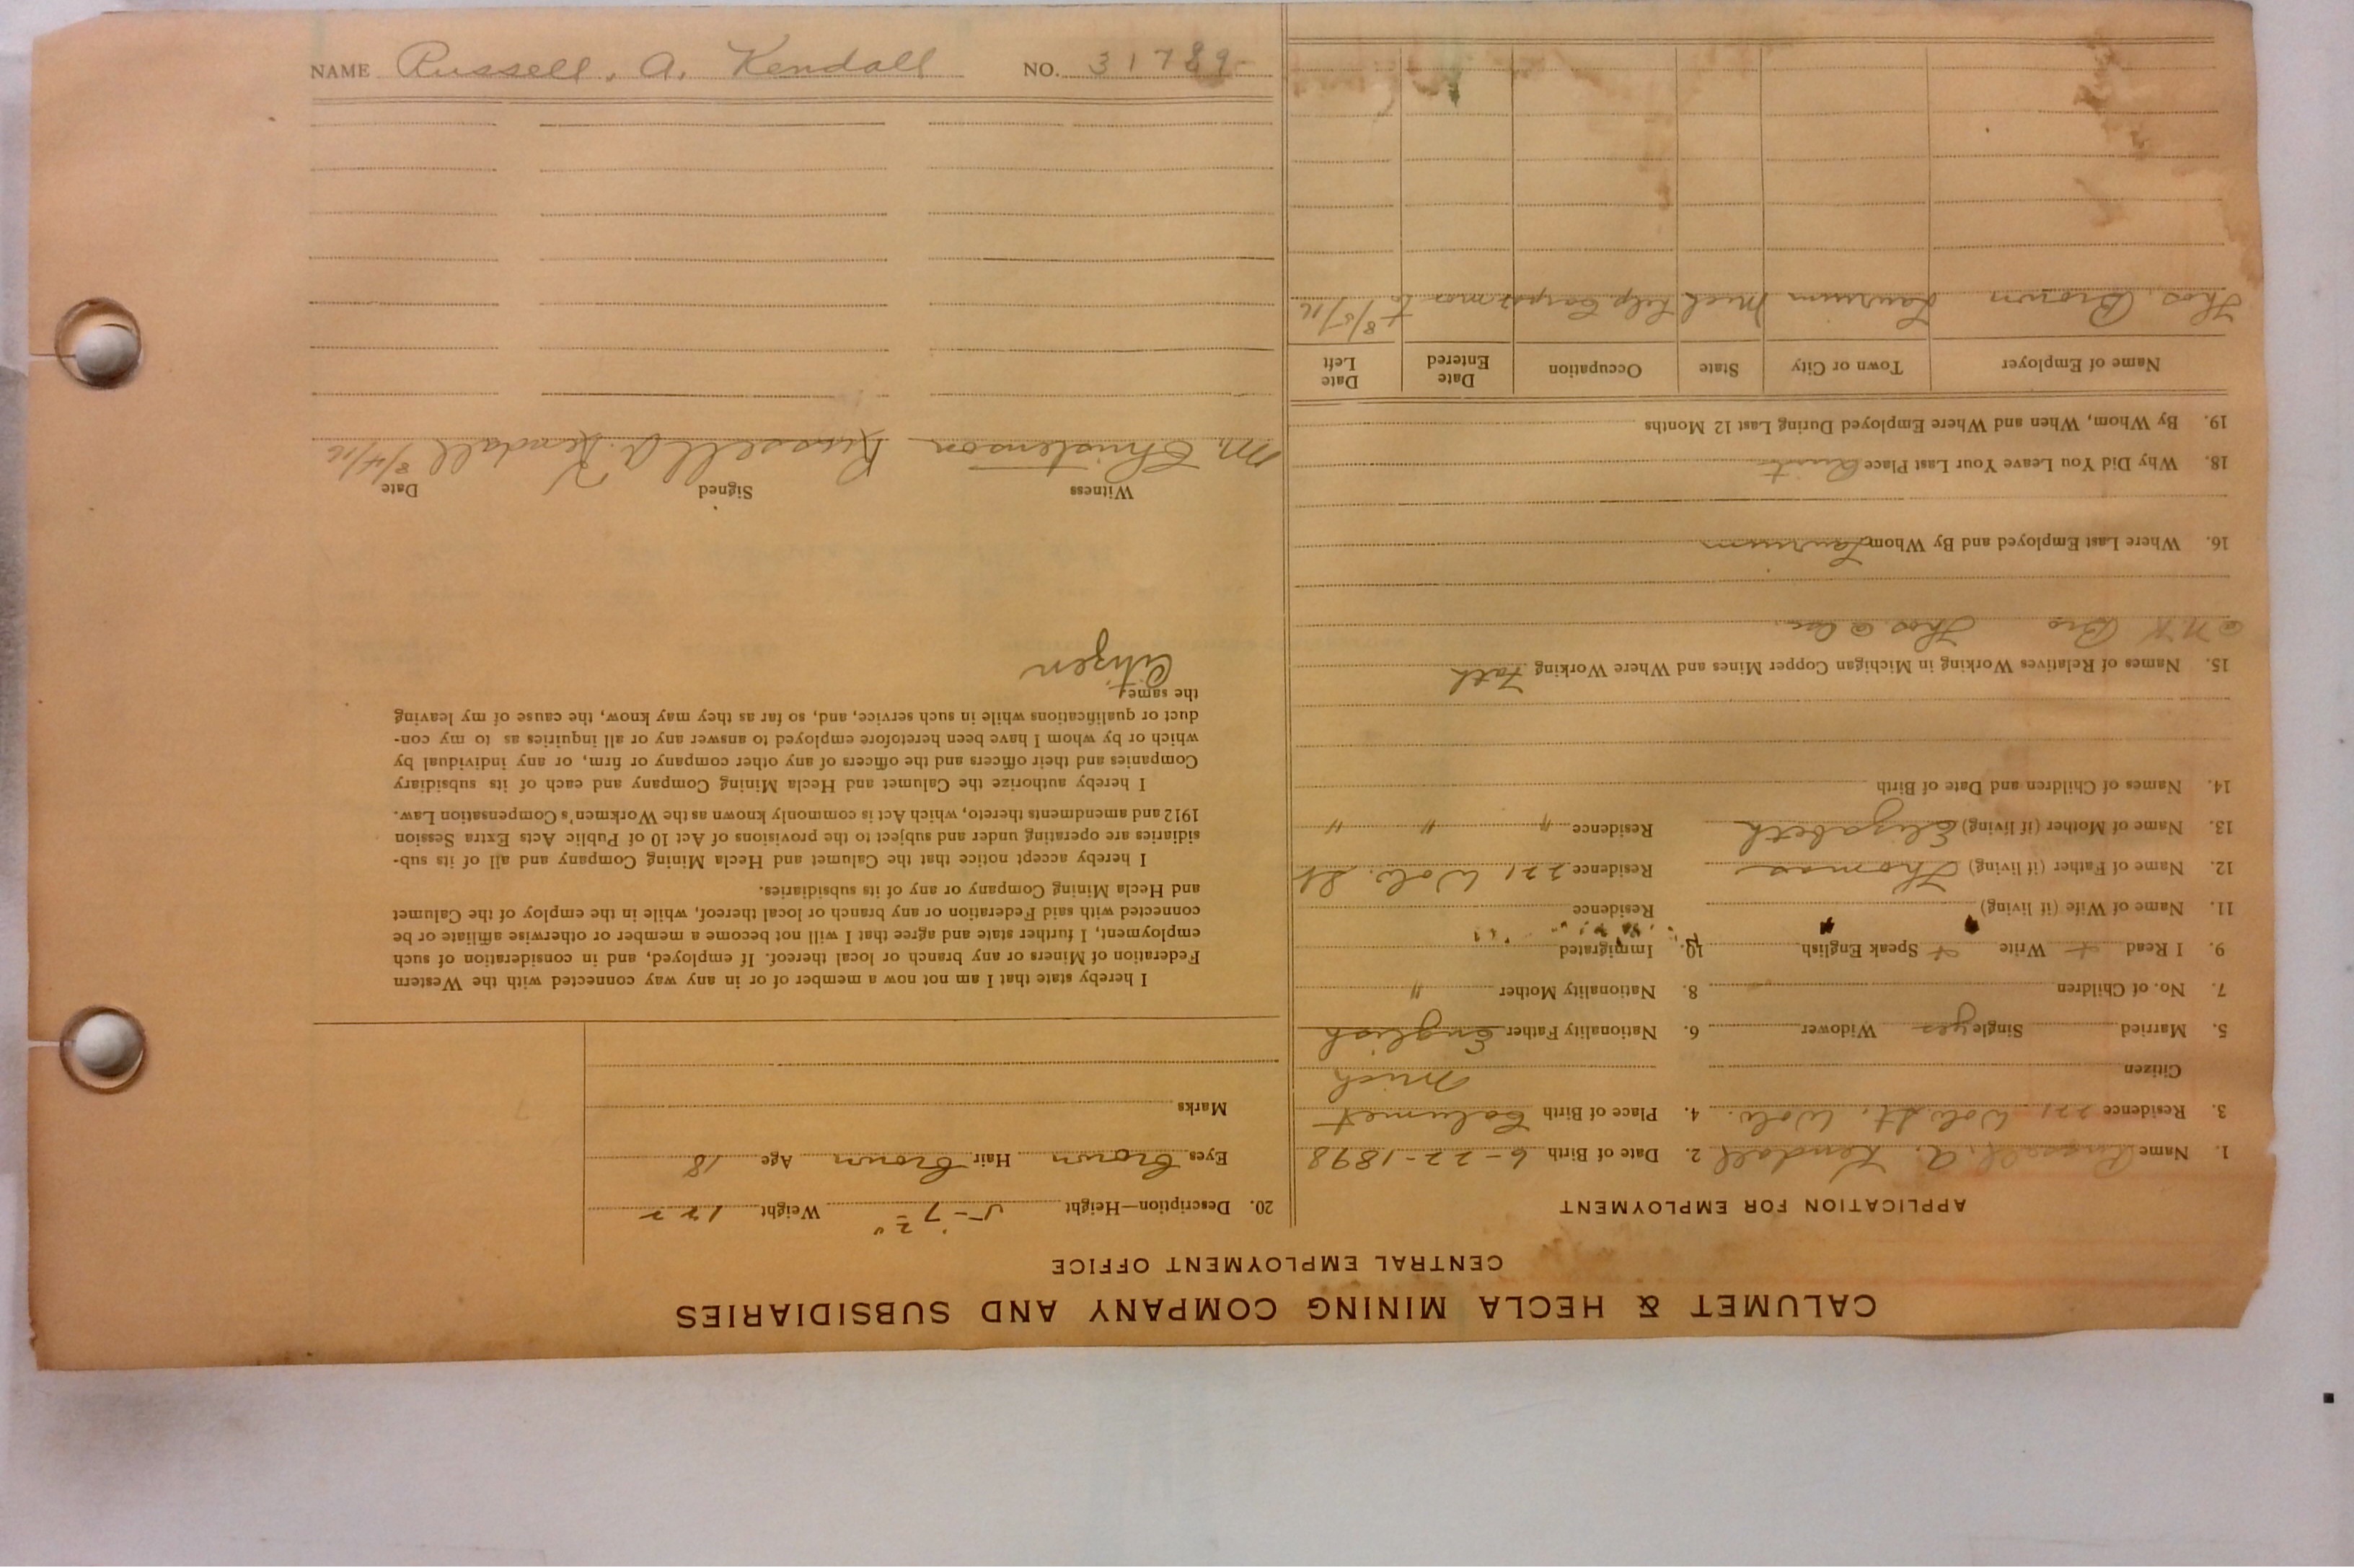 NAME Russell. A. Kendall NO. 31789
CALUMET & HECLA MINING COMPANY AND SUBSIDIARIES
CENTRAL EMPLOYMENT OFFICE
APPLICATION FOR EMPLOYMENT
1. Name Russell. A. Kendall 2. Date of Birth 6-22-1898
3. Residence 221 Wol. St. Wolv. 4. Place of Birth Calumet
Citizen Mich
5. Married Single yes Widower 6. Nationality Father English
7. No. of Children 8. Nationality Mother "
9. I Read + Write + Speak English 10. Immigrated
11. Name of Wife (if living) Residence
12. Name of Father (if living) Thomas Residence 221 Wolv. St
13. Name of Mother (if living) Elizabeth Residence " " "
14. Names of Children and Date of Birth
15. Names of Relatives Working in Michigan Copper Mines and Where Working Fath
@ N K Bro Thos @
16. Where Last Employed and By Whom Laurium
18. Why Did You Leave Your Last Place Quit
19. By Whom, When and Where Employed During Last 12 Months
Name of Employer Town or City State Occupation Date Entered Date Left
Thos. Brown Laurium Mich Help Carp 2 mos to 8/5/16
20. Description—Height 5-7 2" Weight 122
Eyes Brown Hair Brown Age 18
Marks
I hereby state that I am not now a member of or in any way connected with the Western
Federation of Miners or any branch or local thereof. If employed, and in consideration of such
employment, I further state and agree that I will not become a member or otherwise affiliate or be
connected with said Federation or any branch or local thereof, while in the employ of the Calumet
and Hecla Mining Company or any of its subsidiaries.
I hereby accept notice that the Calumet and Hecla Mining Company and all of its sub-
sidiaries are operating under and subject to the provisions of Act 10 of Public Acts Extra Session
1912 and amendments thereto, which Act is commonly known as the Workmen's Compensation Law.
I hereby authorize the Calumet and Hecla Mining Company and each of its subsidiary
Companies and their officers and the officers of any other company or firm, or any individual by
which or by whom I have been heretofore employed to answer any or all inquiries as to my con-
duct or qualifications while in such service, and, so far as they may know, the cause of my leaving
the same.
Citizen
Witness Signed Date
M. Christenson Russell A. Kendall 8/4/16